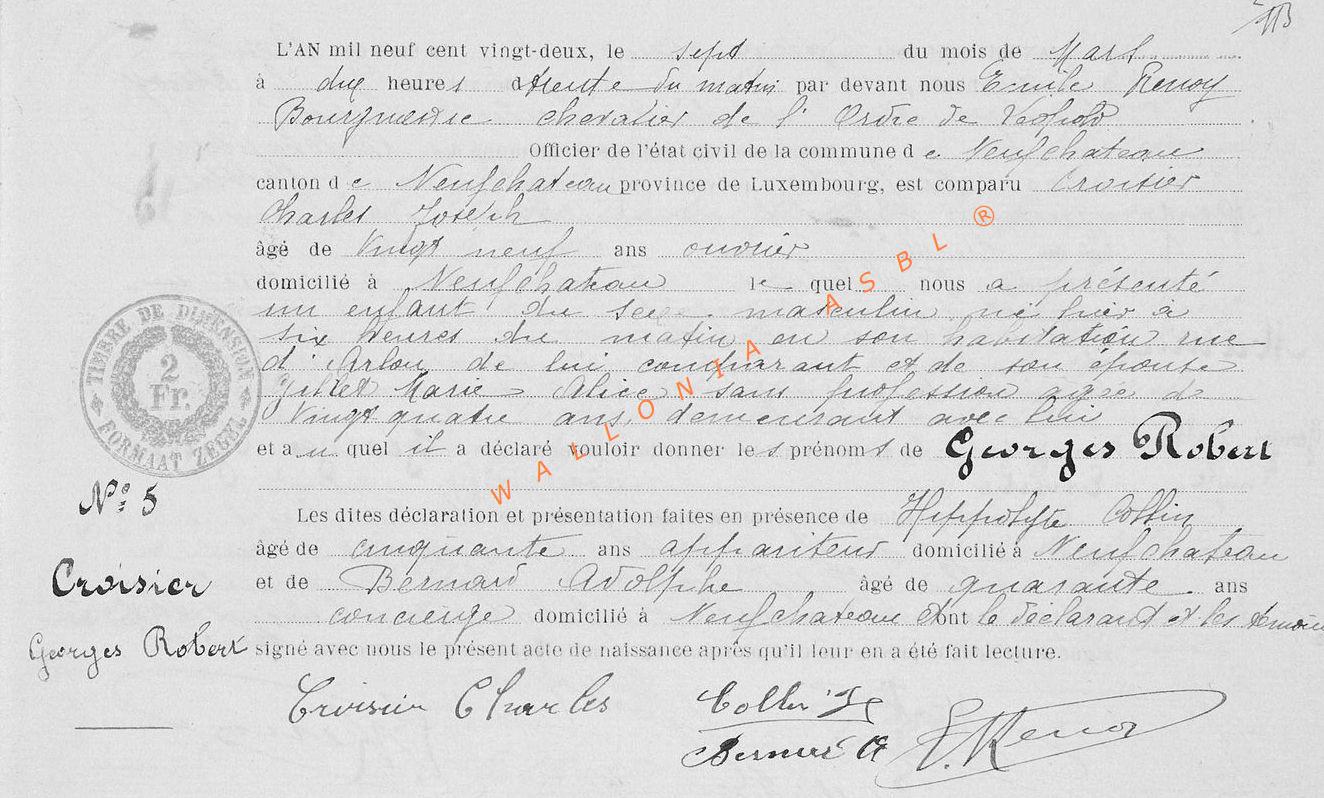 113
L'AN mil neuf cent vingt-deux, le sept du mois de Mars
à dix heures trente du matin par devant nous Emile Renoy
Bourgmestre chevalier de l'Ordre de Léopold
Officier de l'état civil de la commune de Neufchateau
canton de Neufchateau province de Luxembourg, est comparu Croisier
Charles Joseph
âgé de vingt neuf ans ouvrier
domicilié à Neufchateau le quel nous a présenté
un enfant du sexe masculin né hier à
six heures du matin en son habitation rue
d'Arlon de lui comparant et de son épouse
Gillet Marie Alice sans profession agée de
vingt quatre ans demeurant avec lui
et au quel il a déclaré vouloir donner les prénoms de Georges Robert
Les dites déclaration et présentation faites en présence de Hippolyte Collin
âgé de cinquante ans appariteur domicilié à Neufchateau
et de Bernard Adolphe âgé de quarante ans
concierge domicilié à Neufchateau et ont le déclarant et les témoins
signé avec nous le présent acte de naissance après qu'il leur en a été fait lecture.
Croisier Charles
Collin
Bernard A
E. Renoy
TIMBRE DE DIMENSION
2
Fr.
FORMAAT ZEGEL
N° 5
Croisier
Georges Robert
WALLONIA ASBL ®